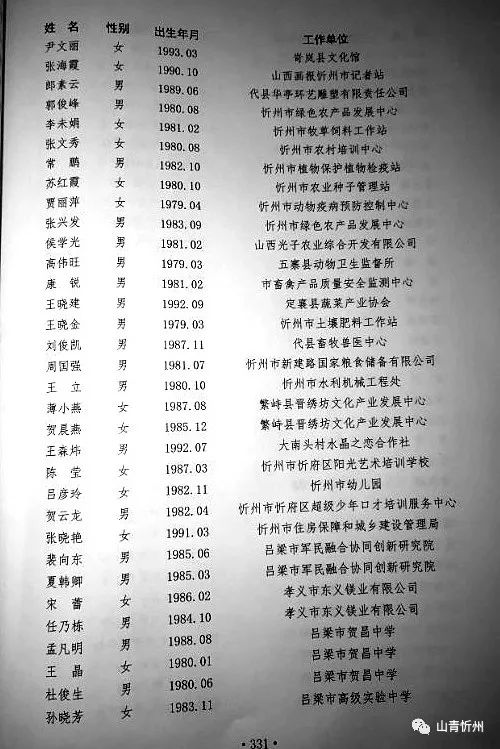 姓 名 性别 出生年月 工作单位
尹文丽 女 1993.03 岢岚县文化馆
张海霞 女 1990.10 山西画报忻州市记者站
郎素云 男 1989.06 代县华亭环艺雕塑有限责任公司
郭俊峰 男 1980.08 忻州市绿色农产品发展中心
李未娟 女 1981.02 忻州市牧草饲料工作站
张文秀 女 1980.08 忻州市农村培训中心
常 鹏 男 1982.10 忻州市植物保护植物检疫站
苏红霞 女 1980.10 忻州市农业种子管理站
贾丽萍 女 1979.04 忻州市动物疫病预防控制中心
张兴发 男 1983.09 忻州市绿色农产品发展中心
侯学光 男 1981.02 山西光子农业综合开发有限公司
高伟旺 男 1979.03 五寨县动物卫生监督所
康 锐 男 1981.02 市畜禽产品质量安全监测中心
王晓建 男 1992.09 定襄县蔬菜产业协会
王晓金 男 1979.03 忻州市土壤肥料工作站
刘俊凯 男 1987.11 代县畜牧兽医中心
周国强 男 1981.07 忻州市新建路国家粮食储备有限公司
王 立 男 1980.10 忻州市水利机械工程处
薄小燕 女 1987.08 繁峙县晋绣坊文化产业发展中心
贺晨燕 女 1985.12 繁峙县晋绣坊文化产业发展中心
王森炜 男 1992.07 大南头村水晶之恋合作社
陈 莹 女 1987.03 忻州市忻府区阳光艺术培训学校
吕彦玲 女 1982.11 忻州市幼儿园
贺云龙 男 1982.04 忻州市忻府区超级少年口才培训服务中心
张晓艳 女 1991.03 忻州市住房保障和城乡建设管理局
裴向东 男 1985.06 吕梁市军民融合协同创新研究院
夏韩卿 男 1985.03 吕梁市军民融合协同创新研究院
宋 蕾 女 1986.02 孝义市东义镁业有限公司
任乃栋 男 1984.10 孝义市东义镁业有限公司
孟凡明 男 1988.08 吕梁市贺昌中学
王 晶 女 1980.01 吕梁市贺昌中学
杜俊生 男 1980.06 吕梁市贺昌中学
孙晓芳 女 1983.11 吕梁市高级实验中学
山青忻州
·331·